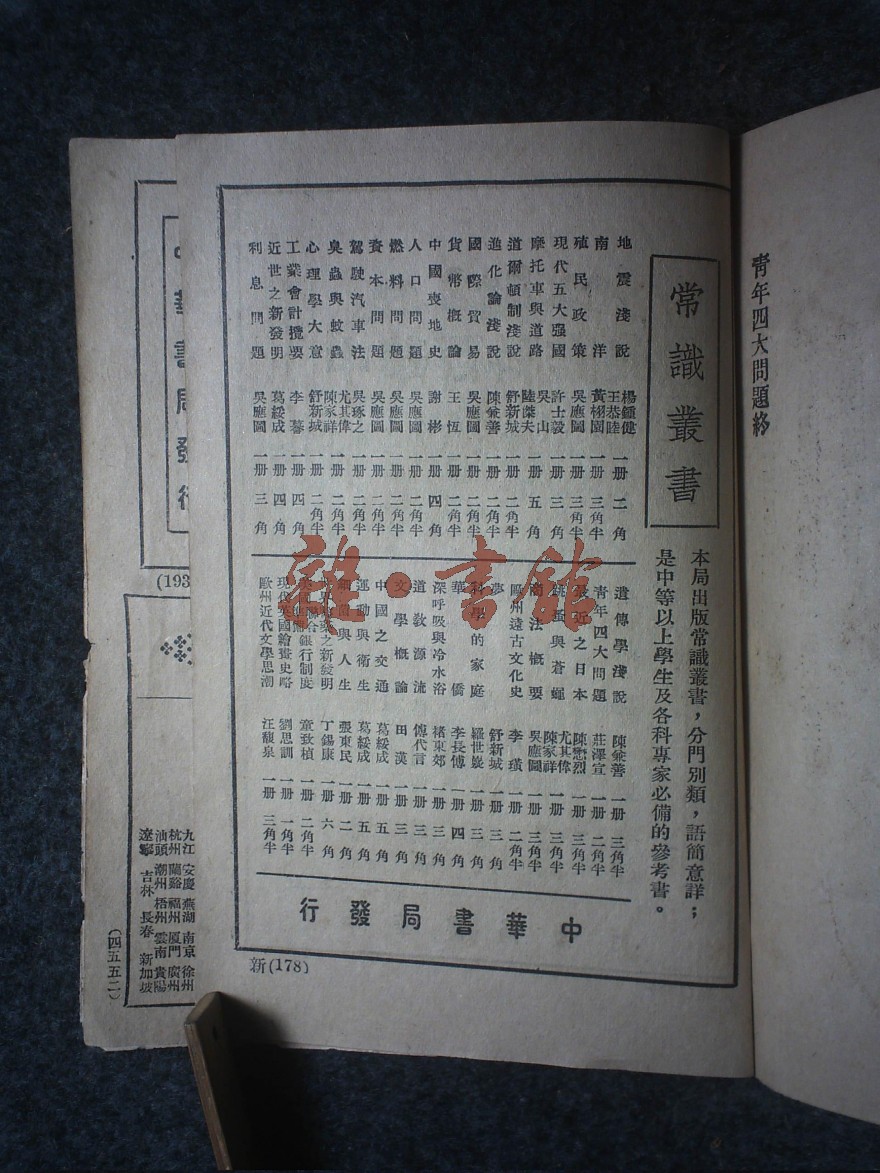 青年四大問題終
常識叢書
本局出版常識叢書，分門別類，語簡意詳；
是中等以上學生及各科專家必備的參考書。
地震淺說 楊鍾健 王恭睦 一册 二角
南洋 黃栩園 一册 三角半
殖民政策 吳應圖 一册 三角半
現代五大强國 許士毅 一册 三角
摩托車與道路 吳山 陸傑夫 一册 五角
道爾頓制淺說 舒新城 一册 二角半
進化論淺說 陳兼善 一册 二角半
國際貿易 吳應圖 一册 二角半
貨幣概論 王恆 一册 二角半
中國喪地史 謝彬 一册 四角
人口問題 吳應圖 一册 二角半
燃料問題 吳應圖 一册 二角半
資本問題 吳應圖 一册 二角半
駕駛汽車法 吳琢之 一册 二角半
臭蟲與蚊蟲 尤其偉 陳家祥 一册 二角半
心理學大意 舒新城 一册 二角半
工業會計攬要 李 一册 四角
近世之新發明 葛綏成 一册 四角
利息問題 吳應圖 一册 三角
遺傳學淺說 陳兼善 一册 三角半
青年四大問題 莊澤宣 一册 二角半
最近之日本 陳懋烈 一册 三角半
跳蚤與蒼蠅 尤其偉 陳家祥 一册 三角半
商法概要 吳應圖 一册 三角半
歐州遠古文化史 李璜 一册 二角半
夢 舒新城 一册 三角
科學的家庭 羅世嶷 一册 三角
華僑 李長傅 一册 四角
深呼吸與冷水浴 褚東郊 一册 三角
道教源流 傅代言 一册 三角
文學概論 田漢 一册 三角
中國之交通 葛綏成 一册 五角
運動與衛生 葛綏成 一册 五角
細菌與人生 張東民 一册 二角
之新發明 丁錫康 一册 六角
聯合銀行制度 章致楨 一册 二角半
現代英國繪畫史略 劉思訓 一册 一角半
歐州近代文學思潮 汪馥泉 一册 三角半
中華書局發行
新(178)
龍·書館
中華書局發行
(193
九江 安慶 蕪湖 南京 徐州
杭州 蘭谿 福州 厦門 廣州
汕頭 潮州 梧州 雲南 貴陽
遼寧 吉林 長春 新加坡
(四五五二)